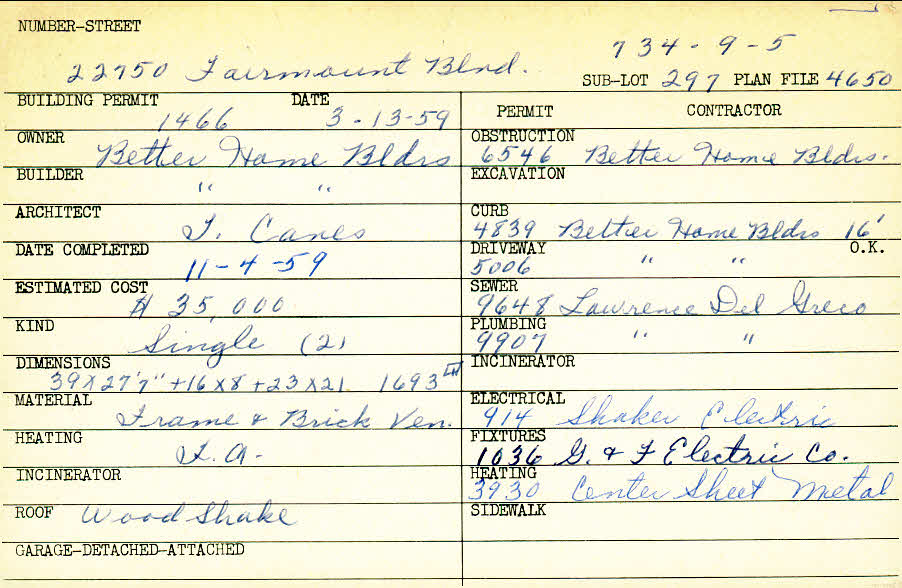 NUMBER-STREET
734-9-5
22750 Fairmount Blvd.
SUB-LOT 297 PLAN FILE 4650
BUILDING PERMIT DATE
1466 3-13-59
OWNER Better Home Bldrs
BUILDER " "
ARCHITECT
DATE COMPLETED
11-4-59
ESTIMATED COST
$ 35,000
KIND Single (2)
DIMENSIONS
39X27'7"+16X8+23X21 1693
MATERIAL
Frame & Brick Ven.
HEATING
F.A.
INCINERATOR
ROOF Wood Shake
GARAGE-DETACHED-ATTACHED
PERMIT CONTRACTOR
OBSTRUCTION
6546 Better Home Bldrs.
EXCAVATION
CURB
4839 Better Home Bldrs 16'
DRIVEWAY O.K.
5006 " "
SEWER
9648 Lawrence Del Greco
PLUMBING
9907 " "
INCINERATOR
ELECTRICAL
914 Shaker Electric
FIXTURES
1036 G. & F Electric Co.
HEATING
3930 Center Sheet Metal
SIDEWALK